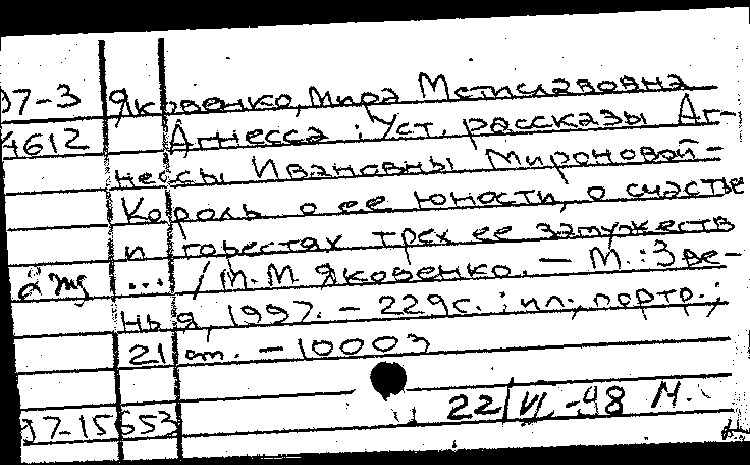 97-3 Яковенко, Мира Мстиславовна
4612 Агнесса : Уст. рассказы Аг-
нессы Ивановны Мироновой-
Король о ее юности, о счастье
и горестях трех ее замужеств
... / М.М. Яковенко. — М. : Зве-
нья, 1997. - 229 с. : ил., портр.;
21 cm. - 10003
22/VI-98 М.
97-15653